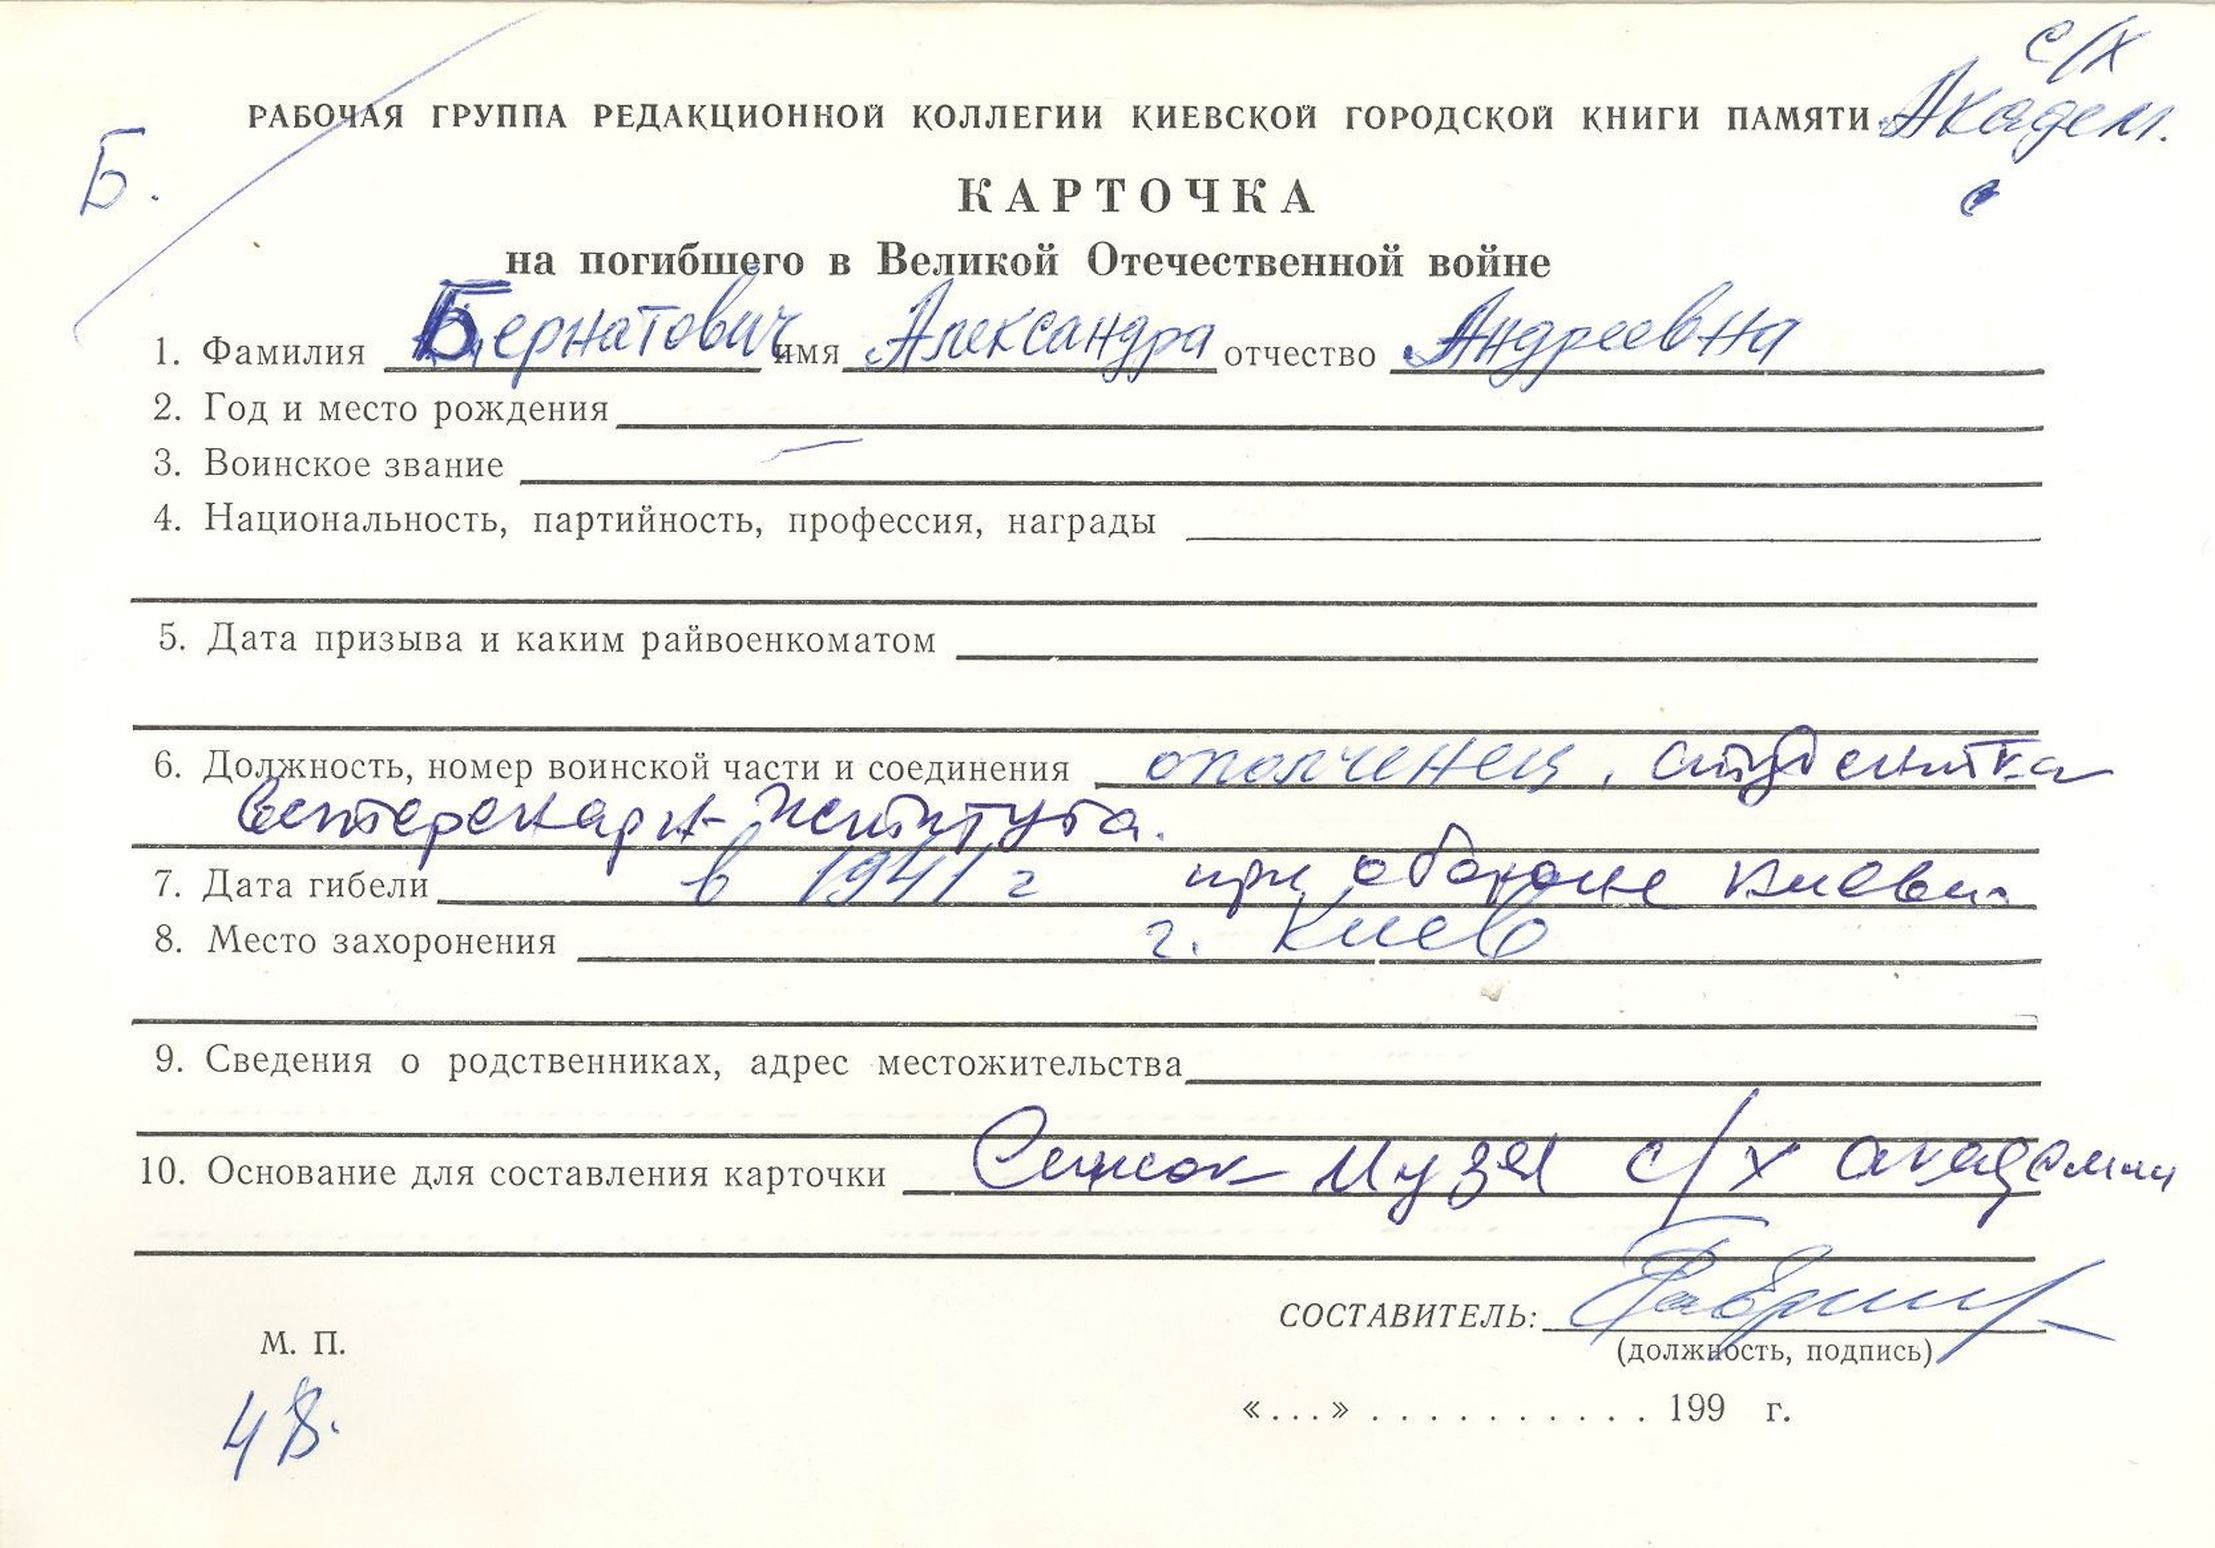 с/х
РАБОЧАЯ ГРУППА РЕДАКЦИОННОЙ КОЛЛЕГИИ КИЕВСКОЙ ГОРОДСКОЙ КНИГИ ПАМЯТИ Академ.
Б.
КАРТОЧКА
на погибшего в Великой Отечественной войне
1. Фамилия Бернатович имя Александра отчество Андреевна
2. Год и место рождения
3. Воинское звание —
4. Национальность, партийность, профессия, награды
5. Дата призыва и каким райвоенкоматом
6. Должность, номер воинской части и соединения ополченец, студентка
института.
7. Дата гибели в 1941 г при обороне Киева
8. Место захоронения г. Киев
9. Сведения о родственниках, адрес местожительства
10. Основание для составления карточки Список Музея с/х академии
СОСТАВИТЕЛЬ:
(должность, подпись)
М. П.
«...» . . . . . . . . . . . 199 г.
48.